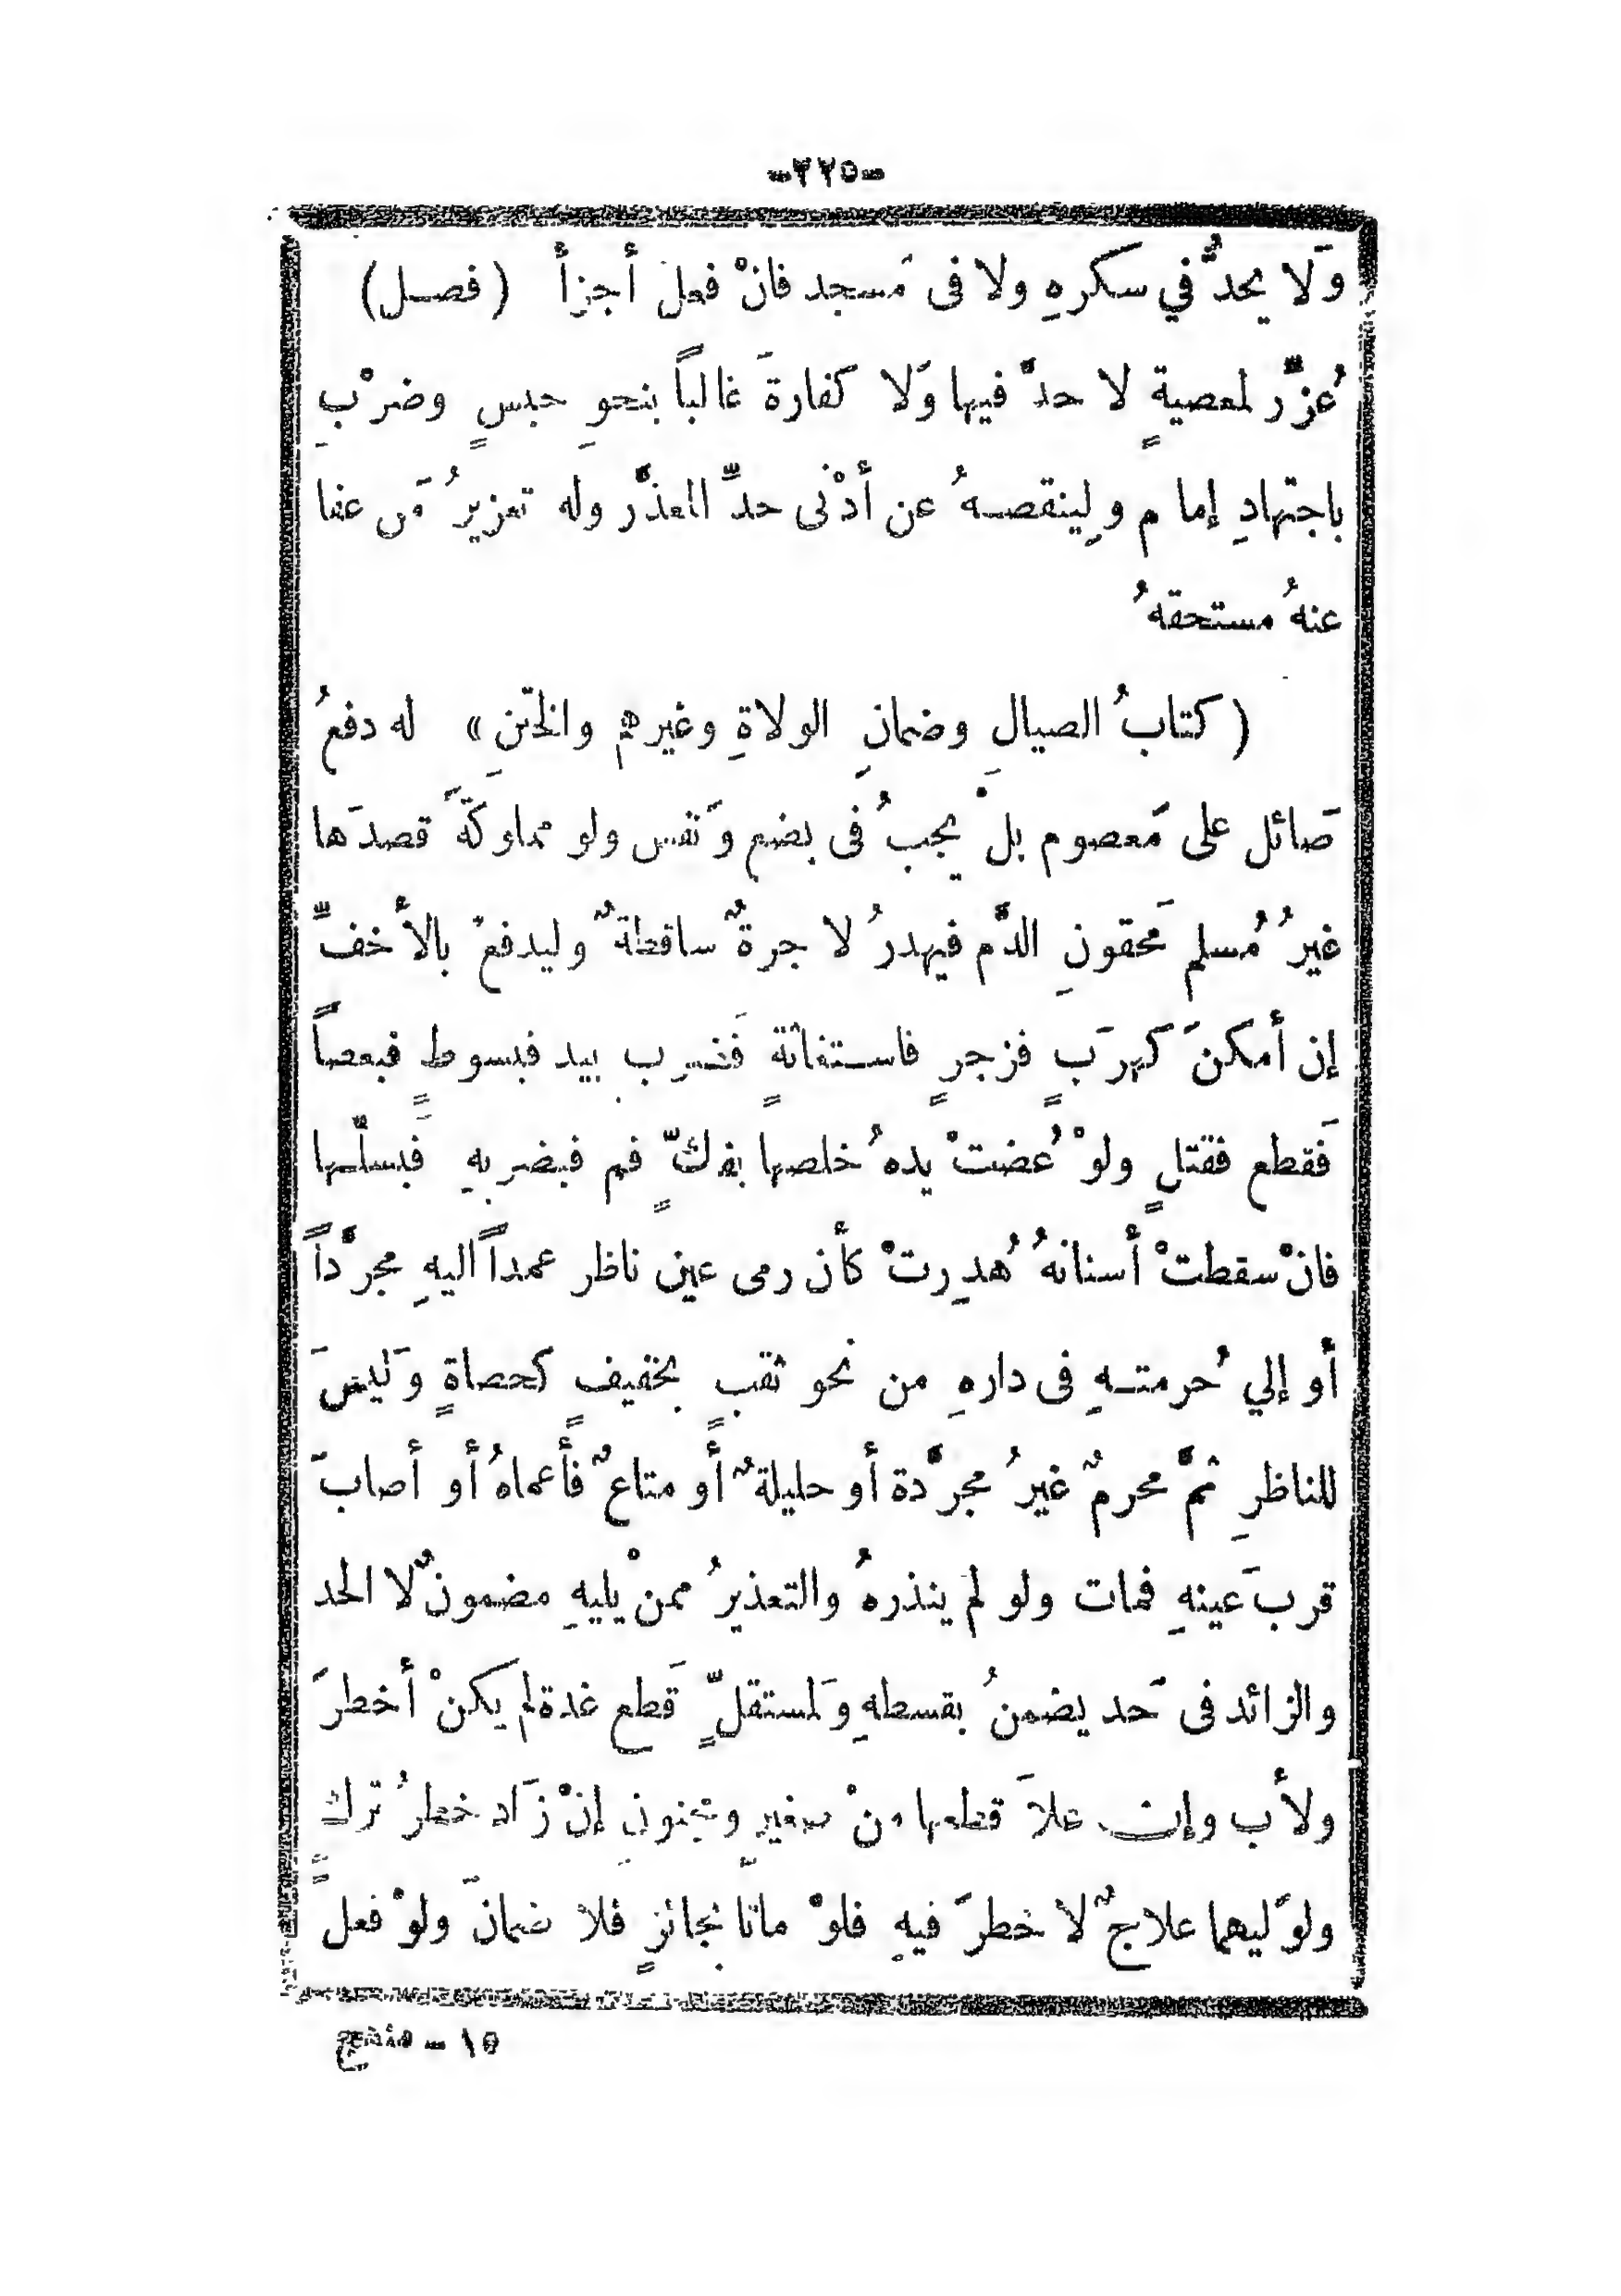 -٢٢٥-
وَلا يحدُّ في سكرهِ ولا فى مَسجد فانْ فعلَ أجزأ (فصل)
عُزِّر لمعصيةٍ لا حدَّ فيها وَلا كفارةَ غالباً بنحوِ حبسٍ وضرْبٍ
باجتهادِ إمام ولِينقصهُ عن أدْنى حدِّ المعذَّر وله تعزيرُ مَن عفا
عنهُ مستحقهُ
(كتابُ الصيالِ وضمانِ الولاةِ وغيرهم والختَنِ) له دفعُ
صَائل على مَعصوم بلْ يجبُ فى بضع وَنفس ولو مملوكةً قصدَها
غيرُ مُسلم مَحقونِ الدَّم فيهدرُ لا جرةٌ ساقطةٌ وليدفعْ بالأخفِّ
إن أمكنَ كهرَبٍ فزجرٍ فاستغاثةٍ فَضرب بيد فبسوطٍ فبعصاً
فَقطع فقتلٍ ولوْ عُضتْ يدهُ خلصها بفكِّ فم فبضربهِ فَبسلّها
فانْ سقطتْ أسنانهُ هُدِرتْ كأن رمى عين ناظر عمداً اليهِ مجرَّداً
أو إلي حُرمتهِ فى دارهِ من نحو ثقبٍ بخفيفٍ كحصاةٍ وَليسَ
للناظرِ ثمَّ محرمٌ غيرُ مجرَّدة أو حليلةٌ أو متاعٌ فأعماهُ أو أصابَ
قربَ عينهِ فمات ولو لم ينذرهُ والتعذيرُ ممنْ يليهِ مضمونٌ لا الحد
والزائد فى حَد يضمنُ بقسطهِ وَلمستقلٍّ قَطع غدة لم يكنْ أخطرَ
ولأب وإن علاَ قطعها منْ صغيرٍ ومجنونٍ إنْ زَاد خطرُ تركٍ
ولوَليهما علاجٌ لا خطرَ فيهِ فلوْ ماتا بجائزٍ فلا ضمانَ ولوْ فعلَ
١٥ - منهج